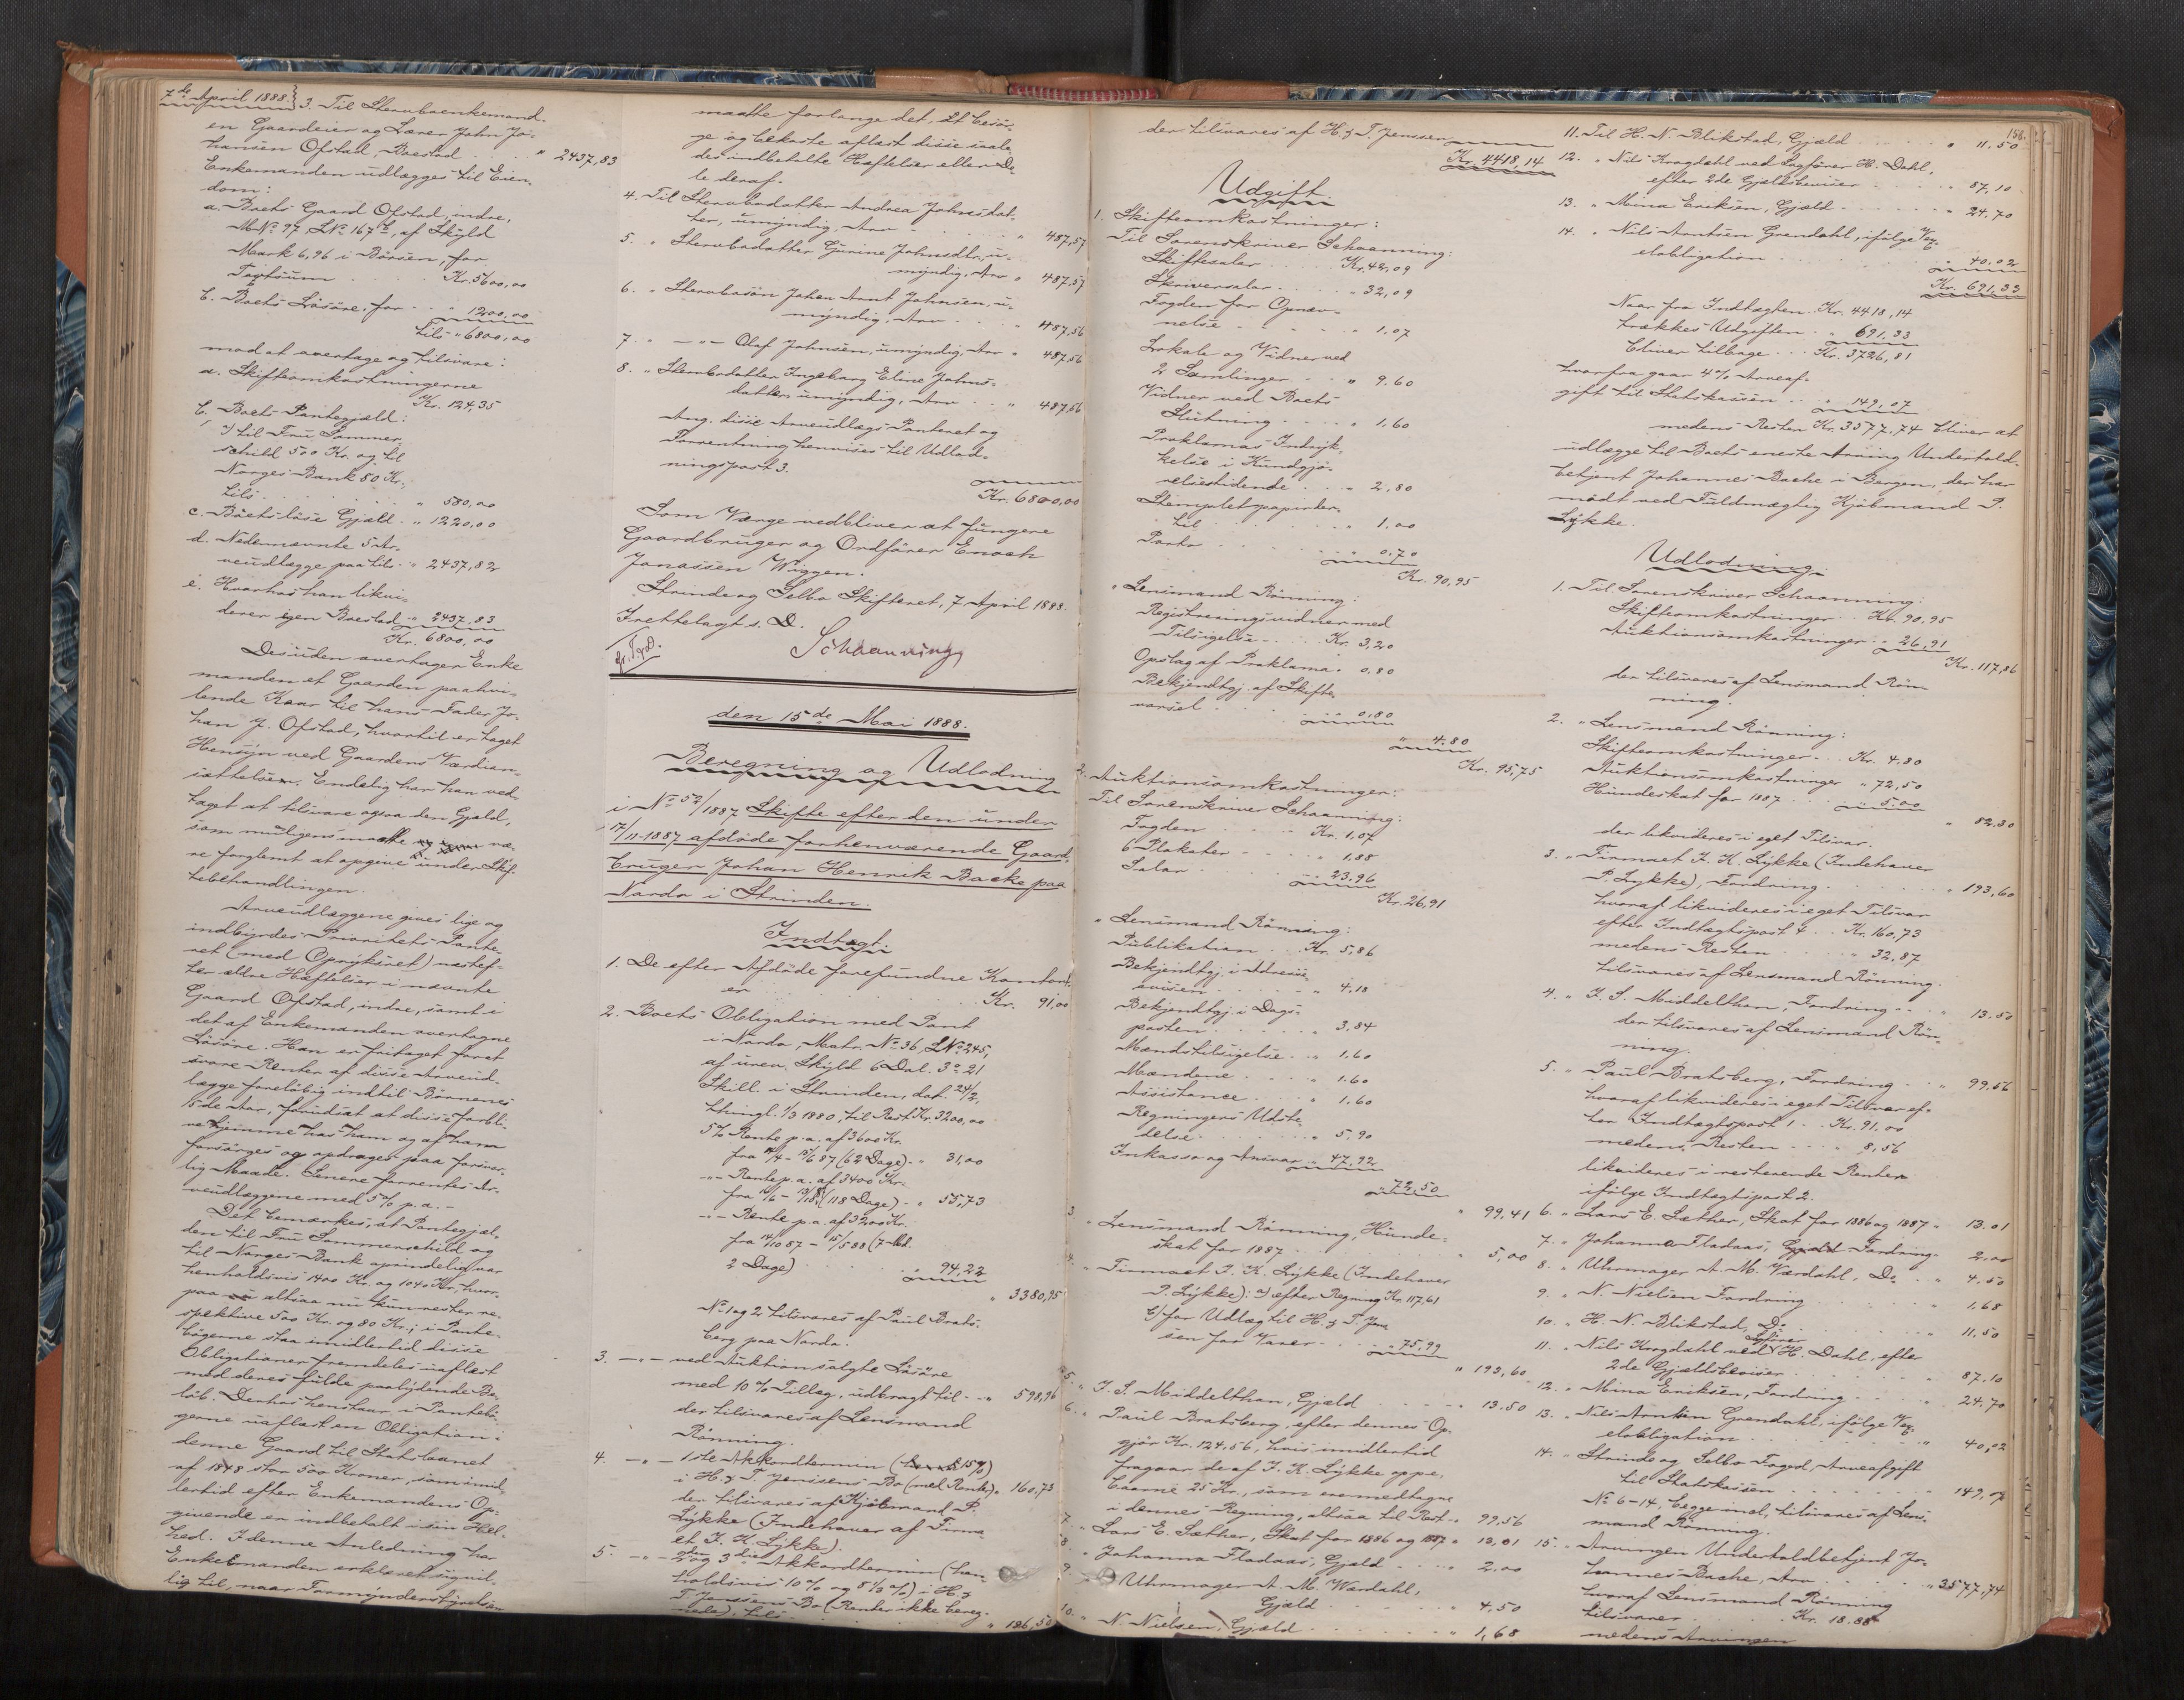 7de April 1888.} 3. Til Stervboenkemand-
en Gaardeier og Lærer John Jo-
hansen Ofstad, Boeslod . . " 2437,83
Enkemanden udlægges til Eien-
dom:
a. Boets Gaard Ofstad, indre,
M.No. 97, LNo. 167b, af Skyld
Mark 6,96 i Börsen, for
Taxtsum . . . Kr. 5600,00
b. Boets Lösöre, for . . " 1200,00
tils. " 6800,00
mod at overtage og tilsvare:
a. Skifteomkostningerne
Kr. 124,35
b. Boets Pantegjæld:
1) til Fru Sommer-
schild 500 Kr. og til
Norges Bank 80 Kr.,
tils. . . . . " 580,00
c. Boets löse Gjæld . " 1220,00
d. Nedennævnte 5 Ar-
veudlægge paa tils. " 2437,82
e. Hvorhos han likvi-
derer egen Boeslod " 2437,83
Kr. 6800,00
Desuden overtager Enke
manden et Gaarden paahvi-
lende Kaar til hans Fader Jo-
han J. Ofstad, hvortil er taget
Hensyn ved Gaardens Værdian-
sættelse. Endelig har han ved-
taget at tilsvare ogsaa den Gjæld,
som muligens maatte væ-
re forglemt at opgive under Skif-
tebehandlingen.
Arveudlæggene gives lige og
indbyrdes Prioritets Pante-
ret (med Opryksret) næstef-
ter ældre Hæftelser i nævnte
Gaard Ofstad, indre, samt i
det af Enkemanden overtagne
Lösöre. Han er fritaget for at
svare Renter af disse Arveud-
lægge foreløbig indtil Börnenes
15de Aar, forudsat at disse forbli-
ve hjemme hos ham og af ham
forsörges og opdrages paa forsvar-
lig Maade. Senere forrentes Ar-
veudlæggene med 5% p. a. -
Det bemærkes, at Pantegjæl-
den til Fru Sommerschild og
til Norges Bank oprindelig var
henholdsvis 1400 Kr. og 1040 Kr., hvor-
paa altsaa nu kun rester re-
spektive 500 Kr. og 80 Kr.; i Pante-
bøgerne staa imidlertid disse
Obligationer fremdeles uaflæst
med deres fulde paalydende Be-
løb. Derhos henstaar i Pantebö-
gerne uaflæst en Obligation i
denne Gaard til Statslaanet
af 1848 stor 500 Kroner, som imid-
lertid efter Enkemandens Op-
givende er indbetalt i sin Hel-
hed. I denne Anledning har
Enkemanden erklæret sig vil-
lig til, naar Formynderstyrelsen
maatte forlange det, at besör-
ge og bekoste aflæst disse saale-
des indbetalte Hæftelser eller De-
le deraf.
4. Til Stervbodatter Andrea Johnsdat-
ter, umyndig, Arv . . . . " 487,57
5. " Stervbodatter Gurine Johnsdtr., u-
myndig, Arv " 487,57
6. " Stervbosön Johan Arnt Johnsen, u-
myndig, Arv . . . " 487,56
7. " -"- Olaf Johnsen, umyndig, Arv " 487,56
8. " Stervbodatter Ingeborg Eline Johns-
datter, umyndig, Arv . . " 487,56
Ang. disse Arveudlægs Panteret og
Forrentning henvises til Udlod-
ningspost 3.
Kr. 6800,00
Som Værge vedbliver at fungere
Gaardbruger og Ordförer Enoch
Jonassen Wiggen.
Strinde og Selbo Skifteret, 7 April 1888.
Fretlagt s. D.
Schaanning
den 15de Mai 1888.
Beregning og Udlodning
i No. 52/1887 Skifte efter den under
17/11-1887 afdöde forhenværende Gaard-
bruger Johan Henrik Backe paa
Nardo i Strinden.
Indtægt.
1. De efter Afdöde forefundne Kontant-
er . . . . . Kr. 91,00
2. Boets Obligation med Pant
i Nardo, Matr. No. 36, LNo. 245,
af urev. Skyld 6 Dal. 3 o. 21
Skill. i Strinden, dat. 24/2,
thingl. 1/3 1880, til Rest Kr. 3200,00
5% Rente p. a. af 3600 Kr.
fra 14/4 - 15/6 87 (62 Dage) . " 31,00
-"- Rente p. a. af 3400 Kr.
(118 Dage) . " 55,73
-"- Rente p. a. af 3200 Kr.
fra 14/10 87 - 15/5 88 (7 Md.
2 Dage) . . . " 94,22
" 3380,95
No. 1 og 2 tilsvares af Paul Brats-
berg paa Nardo.
3. -"- ved Auktion solgte Lösöre
med 10% Tillæg, udbragt til . " 598,96
der tilsvares af Lensmand
Rönning.
4. -"- 1ste Akkordtermin (15%)
i H. & T. Jenssens Bo (med Rente) " 160,73
der tilsvares af Kjöbmand P.
Lykke (Indehaver af Firma-
et J. K. Lykke).
5. -"- 2den og 3die Akkordtermin (hen-
holdsvis 10% og 8 1/3 %) i H. &
T. Jenssens Bo (Renter ikke bereg-
nede), tils. . . . " 186,50
der tilsvares af H. & T. Jenssen
Kr. 4418,14
Udgift
1. Skifteomkostninger:
Til Sorenskriver Schaanning:
Skiftesalær . . . Kr. 42,09
Skriversalær . . . " 32,09
Fogden for Opnæv-
nelse . . . . " 1,07
Lokale og Vidner ved
2 Samlinger . . " 9,60
Vidner ved Boets
Slutning . . . " 1,60
Proklamas Indryk-
kelse i Kundgjö-
relsestidende . . " 2,80
Stemplet papir
til . . . . " 1,00
Porto . . . . " 0,70
Kr. 90,95
" Lensmand Rönning:
Registreringsvidner med
Tilsigelse . . Kr. 3,20
Opslag af Proklama " 0,80
Bekjendtgj. af Skifte-
varsel . . . " 0,80
" 4,80
Kr. 95,75
2. Auktionsomkostninger:
Til Sorenskriver Schaanning:
Fogden . . . Kr. 1,07
6 Plakater . . . " 1,88
Salær . . . " 23,96
Kr. 26,91
" Lensmand Rönning:
Publikation . . Kr. 5,86
Bekjendtgj. i Adresse-
avisen . . . . " 4,18
Bekjendtgj. i Dags-
posten . . . . " 3,84
Mændstilsigelse . . " 1,60
Mændene . . . " 1,60
Assistance . . . " 1,60
Regningers Udste-
delse . . . . " 5,90
Inkasso og Ansvar " 47,92
" 72,50
" 99,41
3. " Lensmand Rönning, Hunde-
skat for 1887 . . . . " 5,00
4. " Firmaet J. K. Lykke (Indehaver
P. Lykke): a) efter Regning Kr. 117,61
b) for Udlæg til H. & T. Jens-
sen for Varer . . " 75,99
" 193,60
5. " J. S. Middelthon, Gjæld . . " 13,50
6. " Paul Bratsberg, efter dennes Op-
gjör Kr. 124,56, hvis imidlertid
fragaar de af J. K. Lykke oppe-
baarne 25 Kr., som ere medtagne
i dennes Regning, altsaa til Rest " 99,56
7. " Lars E. Sæther, Skat for 1886 og 1887 " 13,01
8. " Johanna Fladaas, Gjæld . . " 2,00
9. " Uhrmager A. M. Wærdahl,
Gjæld . . . . " 4,50
10. " N. Nielsen, Gjæld . . . . " 1,68
158.
11. Til H. N. Blikstad, Gjæld . . . . " 11,50
12. " Nils Krogdahl ved Sagförer H. Dahl,
efter 2de Gjældsbeviser . . . " 87,10
13. " Mina Eriksen, Gjæld . . . . " 24,70
14. " Nils Arntsen Grendahl, ifølge Vex-
elobligation . . . . . " 40,02
Kr. 691,33
Naar fra Indtægten . Kr. 4418,14
trækkes Udgiften . . " 691,33
bliver tilbage . . . Kr. 3726,81
hvorfra gaar 4% Arveaf-
gift til Statskassen . . " 149,07
medens Resten Kr. 3577,74 bliver at
udlægge til Boets eneste Arving Undertold-
betjent Johannes Backe i Bergen, der har
mödt ved Fuldmægtig Kjöbmand P.
Lykke.
Udlodning.
1. Til Sorenskriver Schaanning:
Skifteomkostninger . . Kr. 90,95
Auktionsomkostninger . " 26,91
Kr. 117,86
der tilsvares af Lensmand Rön-
ning.
2. " Lensmand Rönning:
Skifteomkostninger . . Kr. 4,80
Auktionsomkostninger " 72,50
Hundeskat for 1887 . . " 5,00
" 82,30
der likvideres i eget Tilsvar.
3. " Firmaet J. K. Lykke (Indehaver
P. Lykke), Fordring . . . . " 193,60
hvoraf likvideres i eget Tilsvar
efter Indtægtspost 4 . . Kr. 160,73
medens Resten . . . " 32,87
tilsvares af Lensmand Rönning.
4. " J. S. Middelthon, Fordring . . " 13,50
der tilsvares af Lensmand Rön-
ning.
5. " Paul Bratsberg, Fordring . . " 99,56
hvoraf likvideres i eget Tilsvar ef-
ter Indtægtspost 1 . . Kr. 91,00
medens Resten . . . " 8,56
likvideres i resterende Renter
ifølge Indtægtspost 2.
6. " Lars E. Sæther, Skat for 1886 og 1887 " 13,01
7. " Johanna Fladaas, Gjæld Fordring " 2,00
8. " Uhrmager A. M. Wærdahl, Do. . " 4,50
9. " N. Nielsen Fordring . . . . " 1,68
10. " H. N. Blikstad, Do. . . . . " 11,50
11. " Nils Krogdahl ved Sagförer H. Dahl, efter
2de Gjældsbeviser . . . . " 87,10
12. " Mina Eriksen, Fordring . . . " 24,70
13. " Nils Arntsen Grendahl, ifølge Vex-
elobligation . . . . . " 40,02
14. " Strinde og Selbo Fogd, Arveafgift
til Statskassen . . . . " 149,07
No. 6-14, begge incl., tilsvares af Lens-
mand Rönning.
15. " Arvingen Undertoldbetjent Jo-
hannes Backe, Arv . . . . " 3577,74
hvoraf Lensmand Rönning
tilsvarer . . . . Kr. 18,88
medens Arvingen